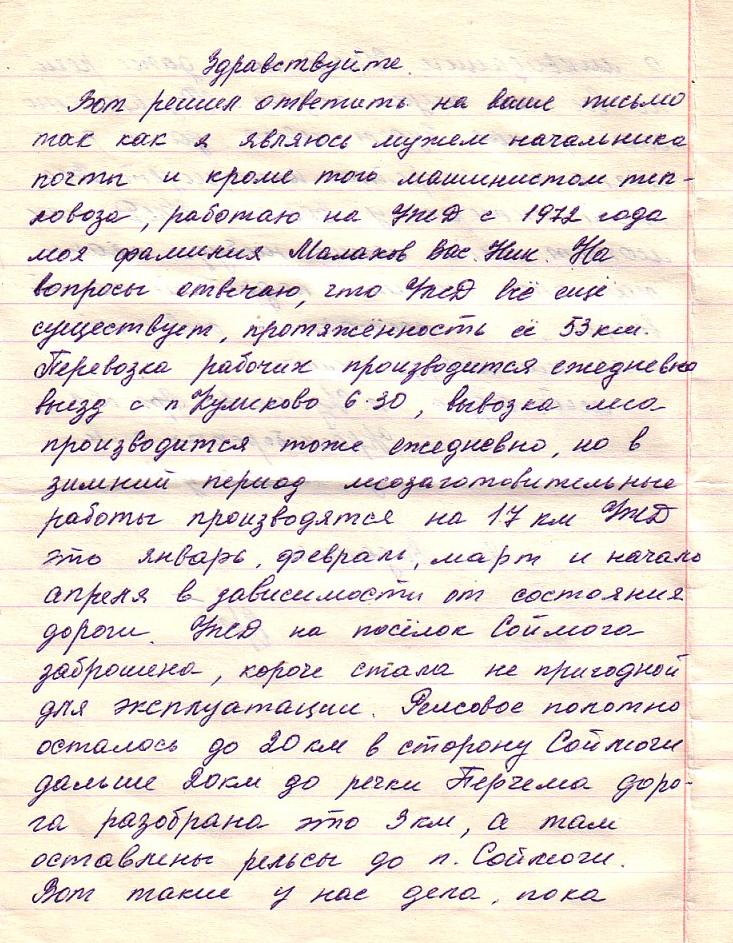 Здравствуйте.
Вот решил ответить на ваше письмо
так как я являюсь мужем начальника
почты и кроме того машинистом теп-
ловоза, работаю на УЖД с 1972 года
моя фамилия Малахов Вас. Ник. На
вопросы отвечаю, что УЖД всё ещё
существует, протяжённость её 53 км.
Перевозка рабочих производится ежедневно
выезд с п. Куликово 6-30, вывозка леса
производится тоже ежедневно, но в
зимний период лесозаготовительные
работы производятся на 17 км УЖД
это январь, феврал, март и начало
апреля в зависимости от состояния
дороги. УЖД на посёлок Соймога
заброшена, короче стала не пригодной
для эксплуатации. Релсовое полотно
осталось до 20 км в сторону Соймоги
дальше 20 км до речки Перчема доро-
га разобрана это 3 км, а там
оставлены рельсы до п. Соймоги.
Вот такие у нас дела, пока